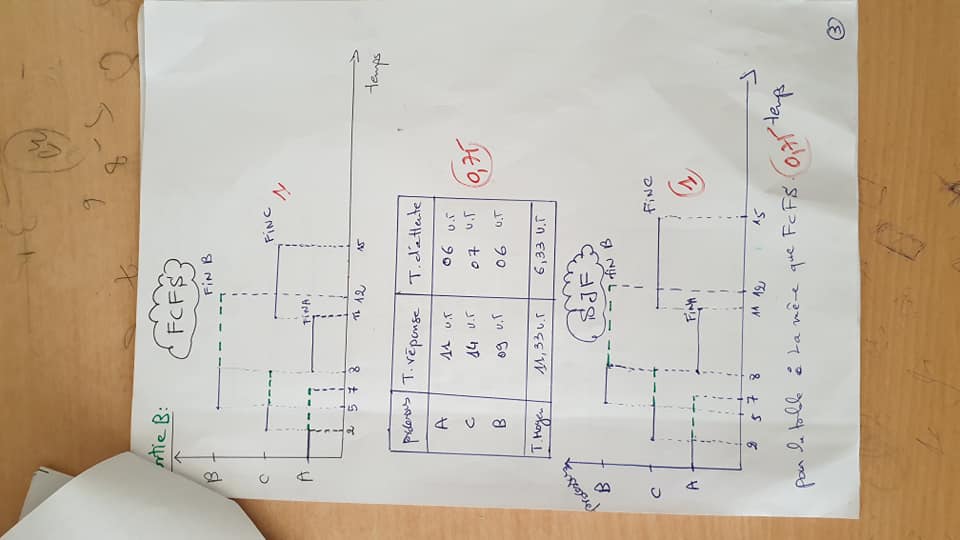 Partie B:
FCFS
B
C
A
FiN B
FiNC
FiNA
1
2 5 7 8 11 12 15
temps
T. réponse T. d'attente
A 11 U.T 06 U.T
C 14 U.T 07 U.T
B 09 U.T 06 U.T
T. Moyen 11,33 U.T 6,33 U.T
0,75
SJF
B
C
A
fiN B
FiNC
FiNA
1
2 5 7 8 11 12 15
temps
pour la table : La même que FCFS. 0,75
3